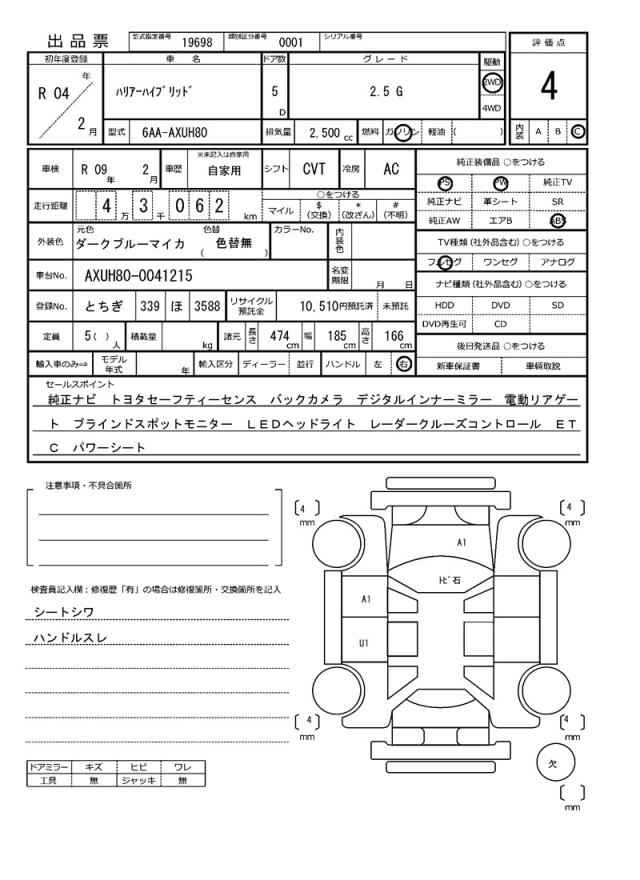 出 品 票 型式指定番号 19698 類別区分番号 0001 シリアル番号
初年度登録 車 名 ドア数 グ レ ー ド 駆動 評 価 点
R 04 年 2 月 ﾊﾘｱｰﾊｲﾌﾞﾘｯﾄﾞ 5 D 2.5 G 2WD 4WD 4
型式 6AA-AXUH80 排気量 2,500 cc 燃料 ガソリン 軽油 ( ) 内装 A B C
車検 R 09 年 2 月 車歴 ※未記入は自家用 自家用 シフト CVT 冷房 AC 純正装備品 ○をつける
PS PW 純正TV
走行距離 4 万 3 千 0 6 2 km ○をつける
マイル $ (交換) * (改ざん) # (不明)
純正ナビ 革シート SR
純正AW エアB ABS
外装色 元色 ダークブルーマイカ 色替 ( 色替無 ) カラーNo. 内装色
TV種類 (社外品含む) ○をつける
フルセグ ワンセグ アナログ
車台No. AXUH80-0041215 名変期限 月 日
ナビ種類 (社外品含む) ○をつける
登録No. とちぎ 339 ほ 3588 リサイクル預託金 10,510円預託済 未預託
HDD DVD SD
DVD再生可 CD
定員 5( ) 人 積載量 kg 諸元 長さ 474 cm 幅 185 cm 高さ 166 cm
後日発送品 ○をつける
輸入車のみ⇒ モデル年式 年 輸入区分 ディーラー 並行 ハンドル 左 右
新車保証書 車輌取説
セールスポイント
純正ナビ トヨタセーフティーセンス バックカメラ デジタルインナーミラー 電動リアゲー
ト ブラインドスポットモニター ＬＥＤヘッドライト レーダークルーズコントロール ＥＴ
Ｃ パワーシート
注意事項・不具合箇所
検査員記入欄：修復歴「有」の場合は修復箇所・交換箇所を記入
シートシワ
ハンドルスレ
ドアミラー キズ ヒビ ワレ
工具 無 ジャッキ 無
4 mm
4 mm
A1
ﾄﾋﾞ石
A1
U1
4 mm
4 mm
欠
mm